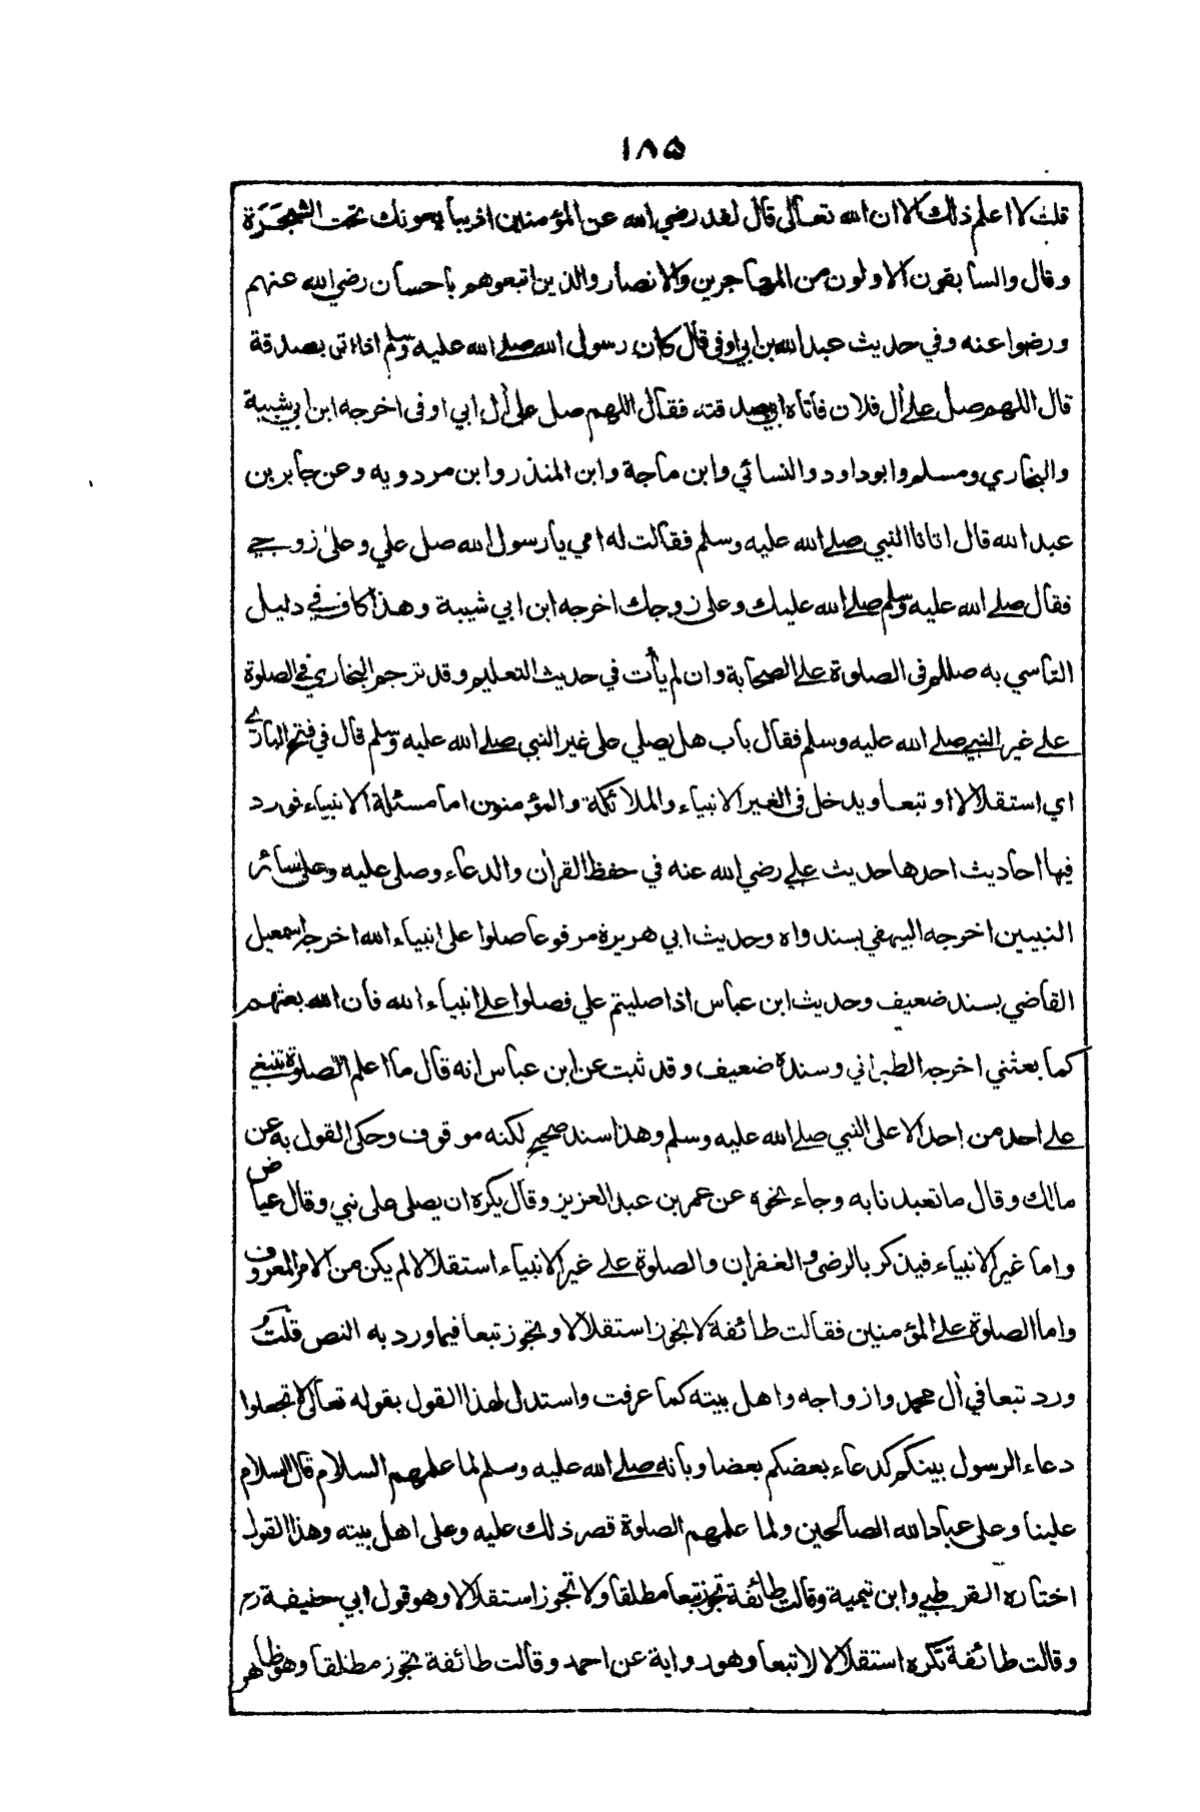 ١٨٥
قلت لا اعلم ذلك الا ان الله تعالى قال لقد رضي الله عن المؤمنين اذ يبايعونك تحت الشجرة
وقال والسابقون الاولون من المهاجرين والانصار والذين اتبعوهم باحسان رضي الله عنهم
ورضوا عنه وفي حديث عبد الله بن ابي اوفى قال كان رسول الله صلى الله عليه وسلم اذا اتى بصدقة
قال اللهم صل على أل فلان فأتاه ابي بصدقته فقال اللهم صل على أل ابي اوفى اخرجه ابن ابي شيبة
والبخاري ومسلم وابو داود والنسائي وابن ماجة وابن المنذر وابن مردويه وعن جابر بن
عبد الله قال اتانا النبي صلى الله عليه وسلم فقالت له امي يا رسول الله صل علي وعلى زوجي
فقال صلى الله عليه وسلم صلى الله عليك وعلى زوجك اخرجه ابن ابي شيبة وهذا كاف في دليل
التأسي به صللم في الصلوة على الصحابة وان لم يأت في حديث التعليم وقد ترجم البخاري في الصلوة
على غير النبي صلى الله عليه وسلم فقال باب هل يصلي على غير النبي صلى الله عليه وسلم قال في فتح الباري
اي استقلالا او تبعا ويدخل في الغير الانبياء والملائكة والمؤمنون اما مسئلة الانبياء فورد
فيها احاديث احدها حديث علي رضي الله عنه في حفظ القرأن والدعاء وصلى عليه وعلى سائر
النبيين اخرجه البيهقي بسند واه وحديث ابي هريرة مرفوعا صلوا على انبياء الله اخرجه اسمعيل
القاضي بسند ضعيف وحديث ابن عباس اذا صليتم علي فصلوا على انبياء الله فان الله بعثهم
كما بعثني اخرجه الطبراني وسنده ضعيف وقد ثبت عن ابن عباس انه قال ما اعلم الصلوة تنبغي
على احد من احد الا على النبي صلى الله عليه وسلم وهذا سند صحيح لكنه موقوف وحكى القول به عن
مالك وقال ما تعبدنا به وجاء نحوه عن عمر بن عبد العزيز وقال يكره ان يصلى على نبي وقال عياض
واما غير الانبياء فيذكر بالرضى والغفران والصلوة على غير الانبياء استقلالا لم يكن من الامر المعروف
واما الصلوة على المؤمنين فقالت طائفة لا يجوز استقلالا ويجوز تبعا فيما ورد به النص قلت
ورد تبعا في أل محمد وازواجه واهل بيته كما عرفت واستدل لهذا القول بقوله تعالى لا تجعلوا
دعاء الرسول بينكم كدعاء بعضكم بعضا وبانه صلى الله عليه وسلم لما علمهم السلام قال السلام
علينا وعلى عباد الله الصالحين ولما علمهم الصلوة قصر ذلك عليه وعلى اهل بيته وهذا القول
اختاره القرطبي وابن تيمية وقالت طائفة تجوز تبعا مطلقا ولا تجوز استقلالا وهو قول ابي حنيفة رح
وقالت طائفة تكره استقلالا لا تبعا وهو رواية عن احمد وقالت طائفة تجوز مطلقا وهو ظاهر